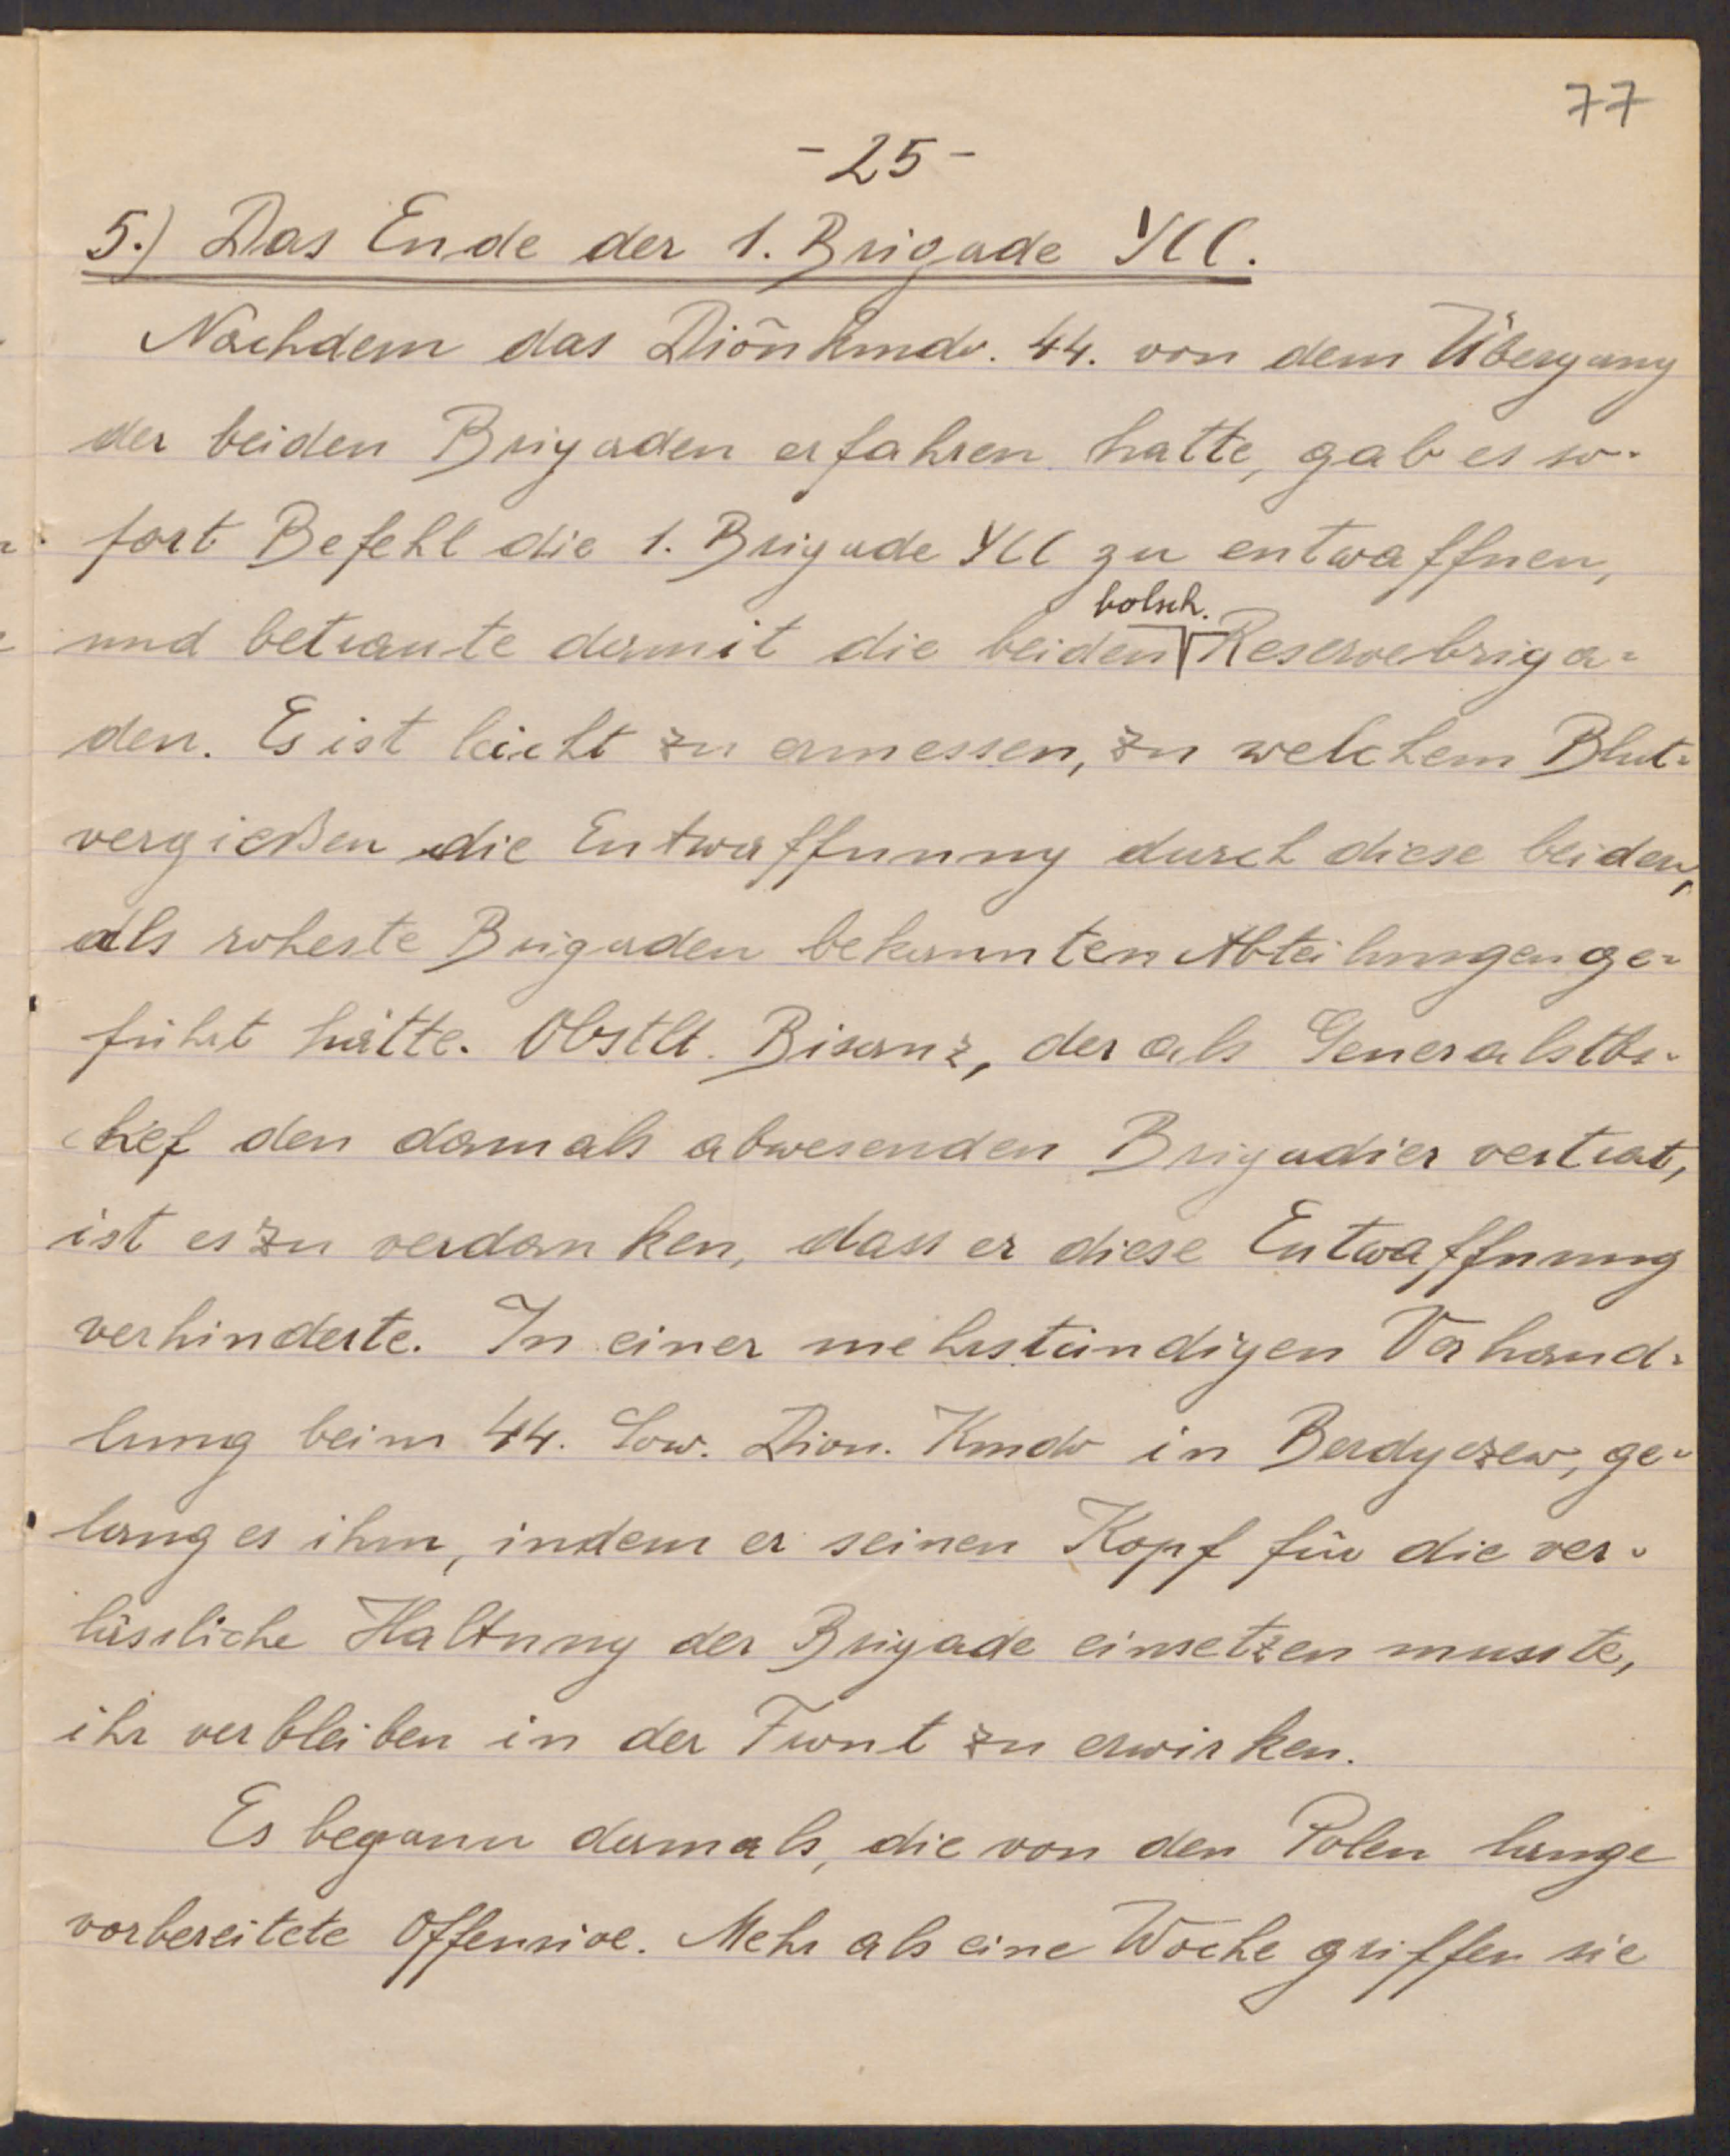 77
- 25 -
5.) Das Ende der 1. Brigade УСС.
Nachdem das Diōnkmdo. 44. von dem Übergang
der beiden Brigaden erfahren hatte, gab es so-
fort Befehl die 1. Brigade УСС zu entwaffnen,
bolsch.
und betraute damit die beiden Reservebriga=
den. Es ist leicht zu ermessen, zu welchem Blut=
vergießen die Entwaffnung durch diese beiden,
als roheste Brigaden bekannten Abteilungen ge=
führt hätte. Obstlt. Bisanz, der als Generalstbs-
chef den damals abwesenden Brigadier vertrat,
ist es zu verdanken, dass er diese Entwaffnung
verhinderte. In einer mehrstündigen Verhand=
lung beim 44. Sow. Dion. Kmdo in Berdyczew, ge=
lang es ihm, indem er seinen Kopf für die ver-
lässliche Haltung der Brigade einsetzen musste,
ihr verbleiben in der Front zu erwirken.
Es begann damals, die von den Polen lange
vorbereitete Offensive. Mehr als eine Woche griffen sie